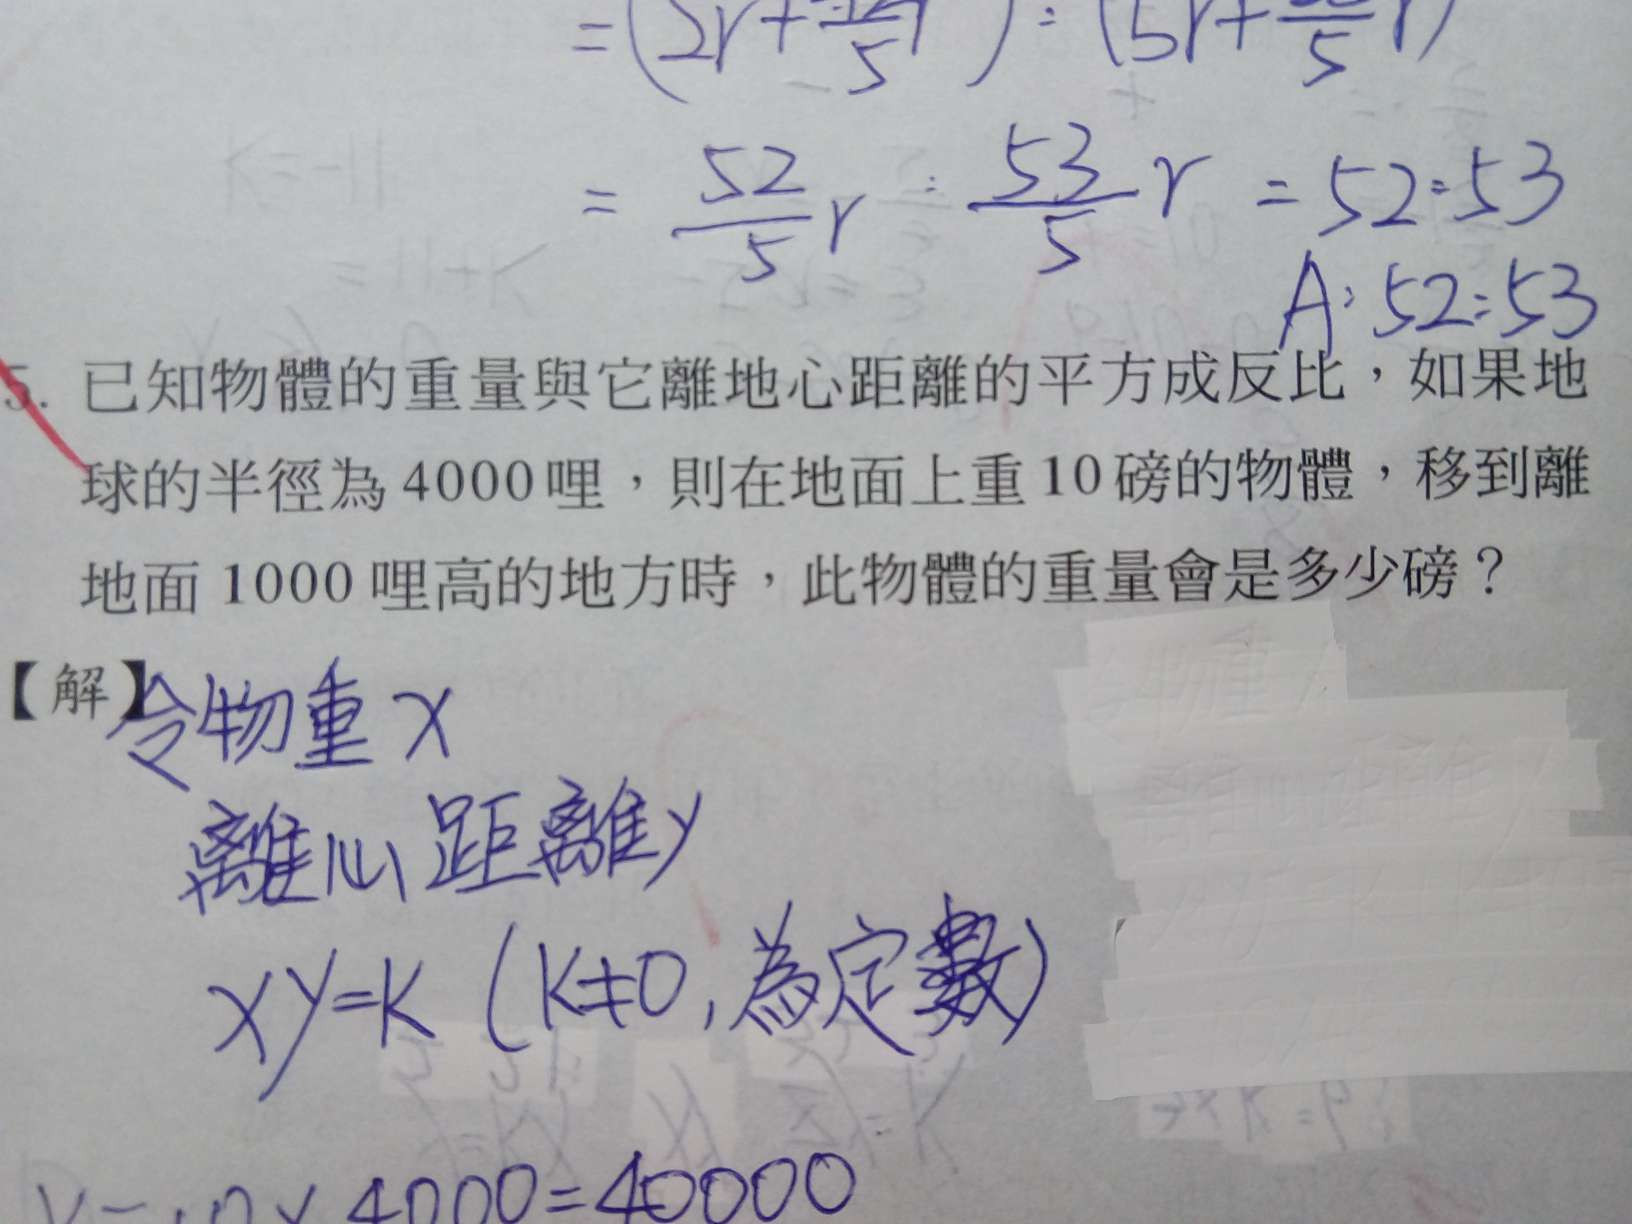 =(2r+ 5 r):(5r+ 5 r)
= 52/5 r : 53/5 r = 52:53
A: 52:53
5. 已知物體的重量與它離地心距離的平方成反比，如果地
球的半徑為4000哩，則在地面上重10磅的物體，移到離
地面1000哩高的地方時，此物體的重量會是多少磅？
【解】令物重x
離心距離y
xy=K (K≠0,為定數)
=10×4000=40000